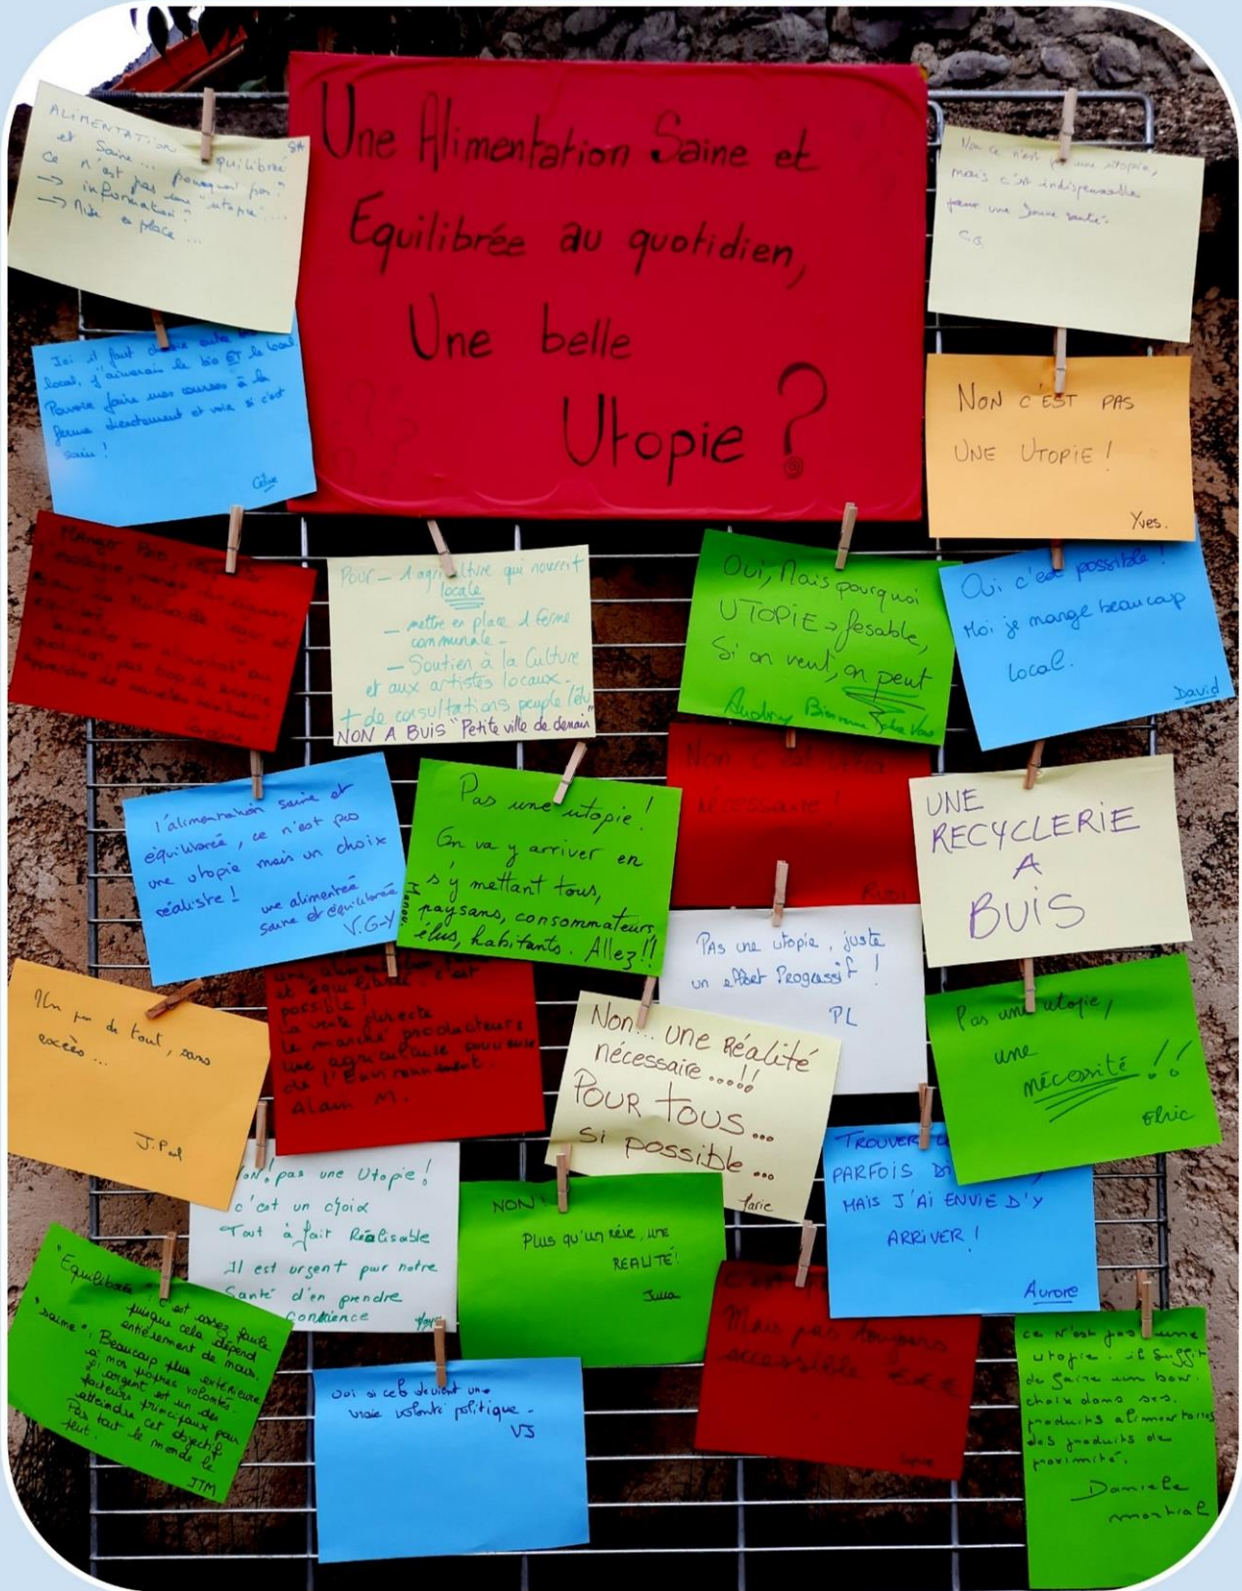 Une Alimentation Saine et
Equilibrée au quotidien,
Une belle
Utopie ?
ALIMENTATION équilibrée SA
et Saine... pourquoi pas ?
ce n'est pas une "utopie"...
→ information ?
→ Mise en place ...
Non ce n'est pas une utopie,
mais c'est indispensable
pour une bonne santé.
Ici il faut choisir entre
local, j'aimerais le bio ET le local.
Pouvoir faire mes courses à la
ferme directement et voir si c'est
sain !
Céline
NON C'EST PAS
UNE UTOPIE !
Yves.
Manger Bio, respecter
Pour - 1 agriculture qui nourrit
locale
- mettre en place 1 ferme
communale -
- Soutien à la Culture
et aux artistes locaux.
+ de consultations peuple / élu
NON A BUIS "Petite ville de demain"
Oui, Mais pourquoi
UTOPIE → fesable,
Si on veut, on peut
Audrey
Oui c'est possible !
Moi je mange beaucoup
local.
David
l'alimentation saine et
équilibrée, ce n'est pas
une utopie mais un choix
réaliste ! une alimentée
saine et équilibrée
V.G-Y
Pas une utopie !
On va y arriver en
s'y mettant tous,
paysans, consommateurs,
élus, habitants. Allez !!
Manou
Non c'est ultra
nécessaire !
UNE
RECYCLERIE
A
BUIS
PAS une utopie, juste
un effort Progressif !
PL
Un peu de tout, sans
excès ...
J. Paul
une alimentation
et équilibrée c'est
possible !
La vente directe
le marché producteurs
une agriculture soucieuse
de l'Environnement.
Alain M.
Non... une Réalité
nécessaire ....!!
POUR TOUS...
si possible ...
Marie
Pas une utopie,
une
nécessité !!
TROUVER
PARFOIS
MAIS J'AI ENVIE D'Y
ARRIVER !
Aurore
NON, pas une Utopie !
c'est un choix
Tout à fait Réalisable
Il est urgent pour notre
Santé d'en prendre
Conscience
NON !
Plus qu'un rêve, une
REALITÉ !
Julia
"Equilibrée", c'est assez facile
puisque cela dépend
entièrement de nous.
"saine". Beaucoup plus extérieure
à mes propres volontés.
L'argent est un des
facteurs principaux pour
atteindre cet objectif
Pas tout le monde le
peut.
JTM
oui si cela devient une
vraie volonté politique -
VJ
Mais pas toujours
accessible € € €
ce n'est pas une
utopie. il suffit
de faire un bon
choix dans ses
produits alimentaires
des produits de
proximité.
Daniele
martial